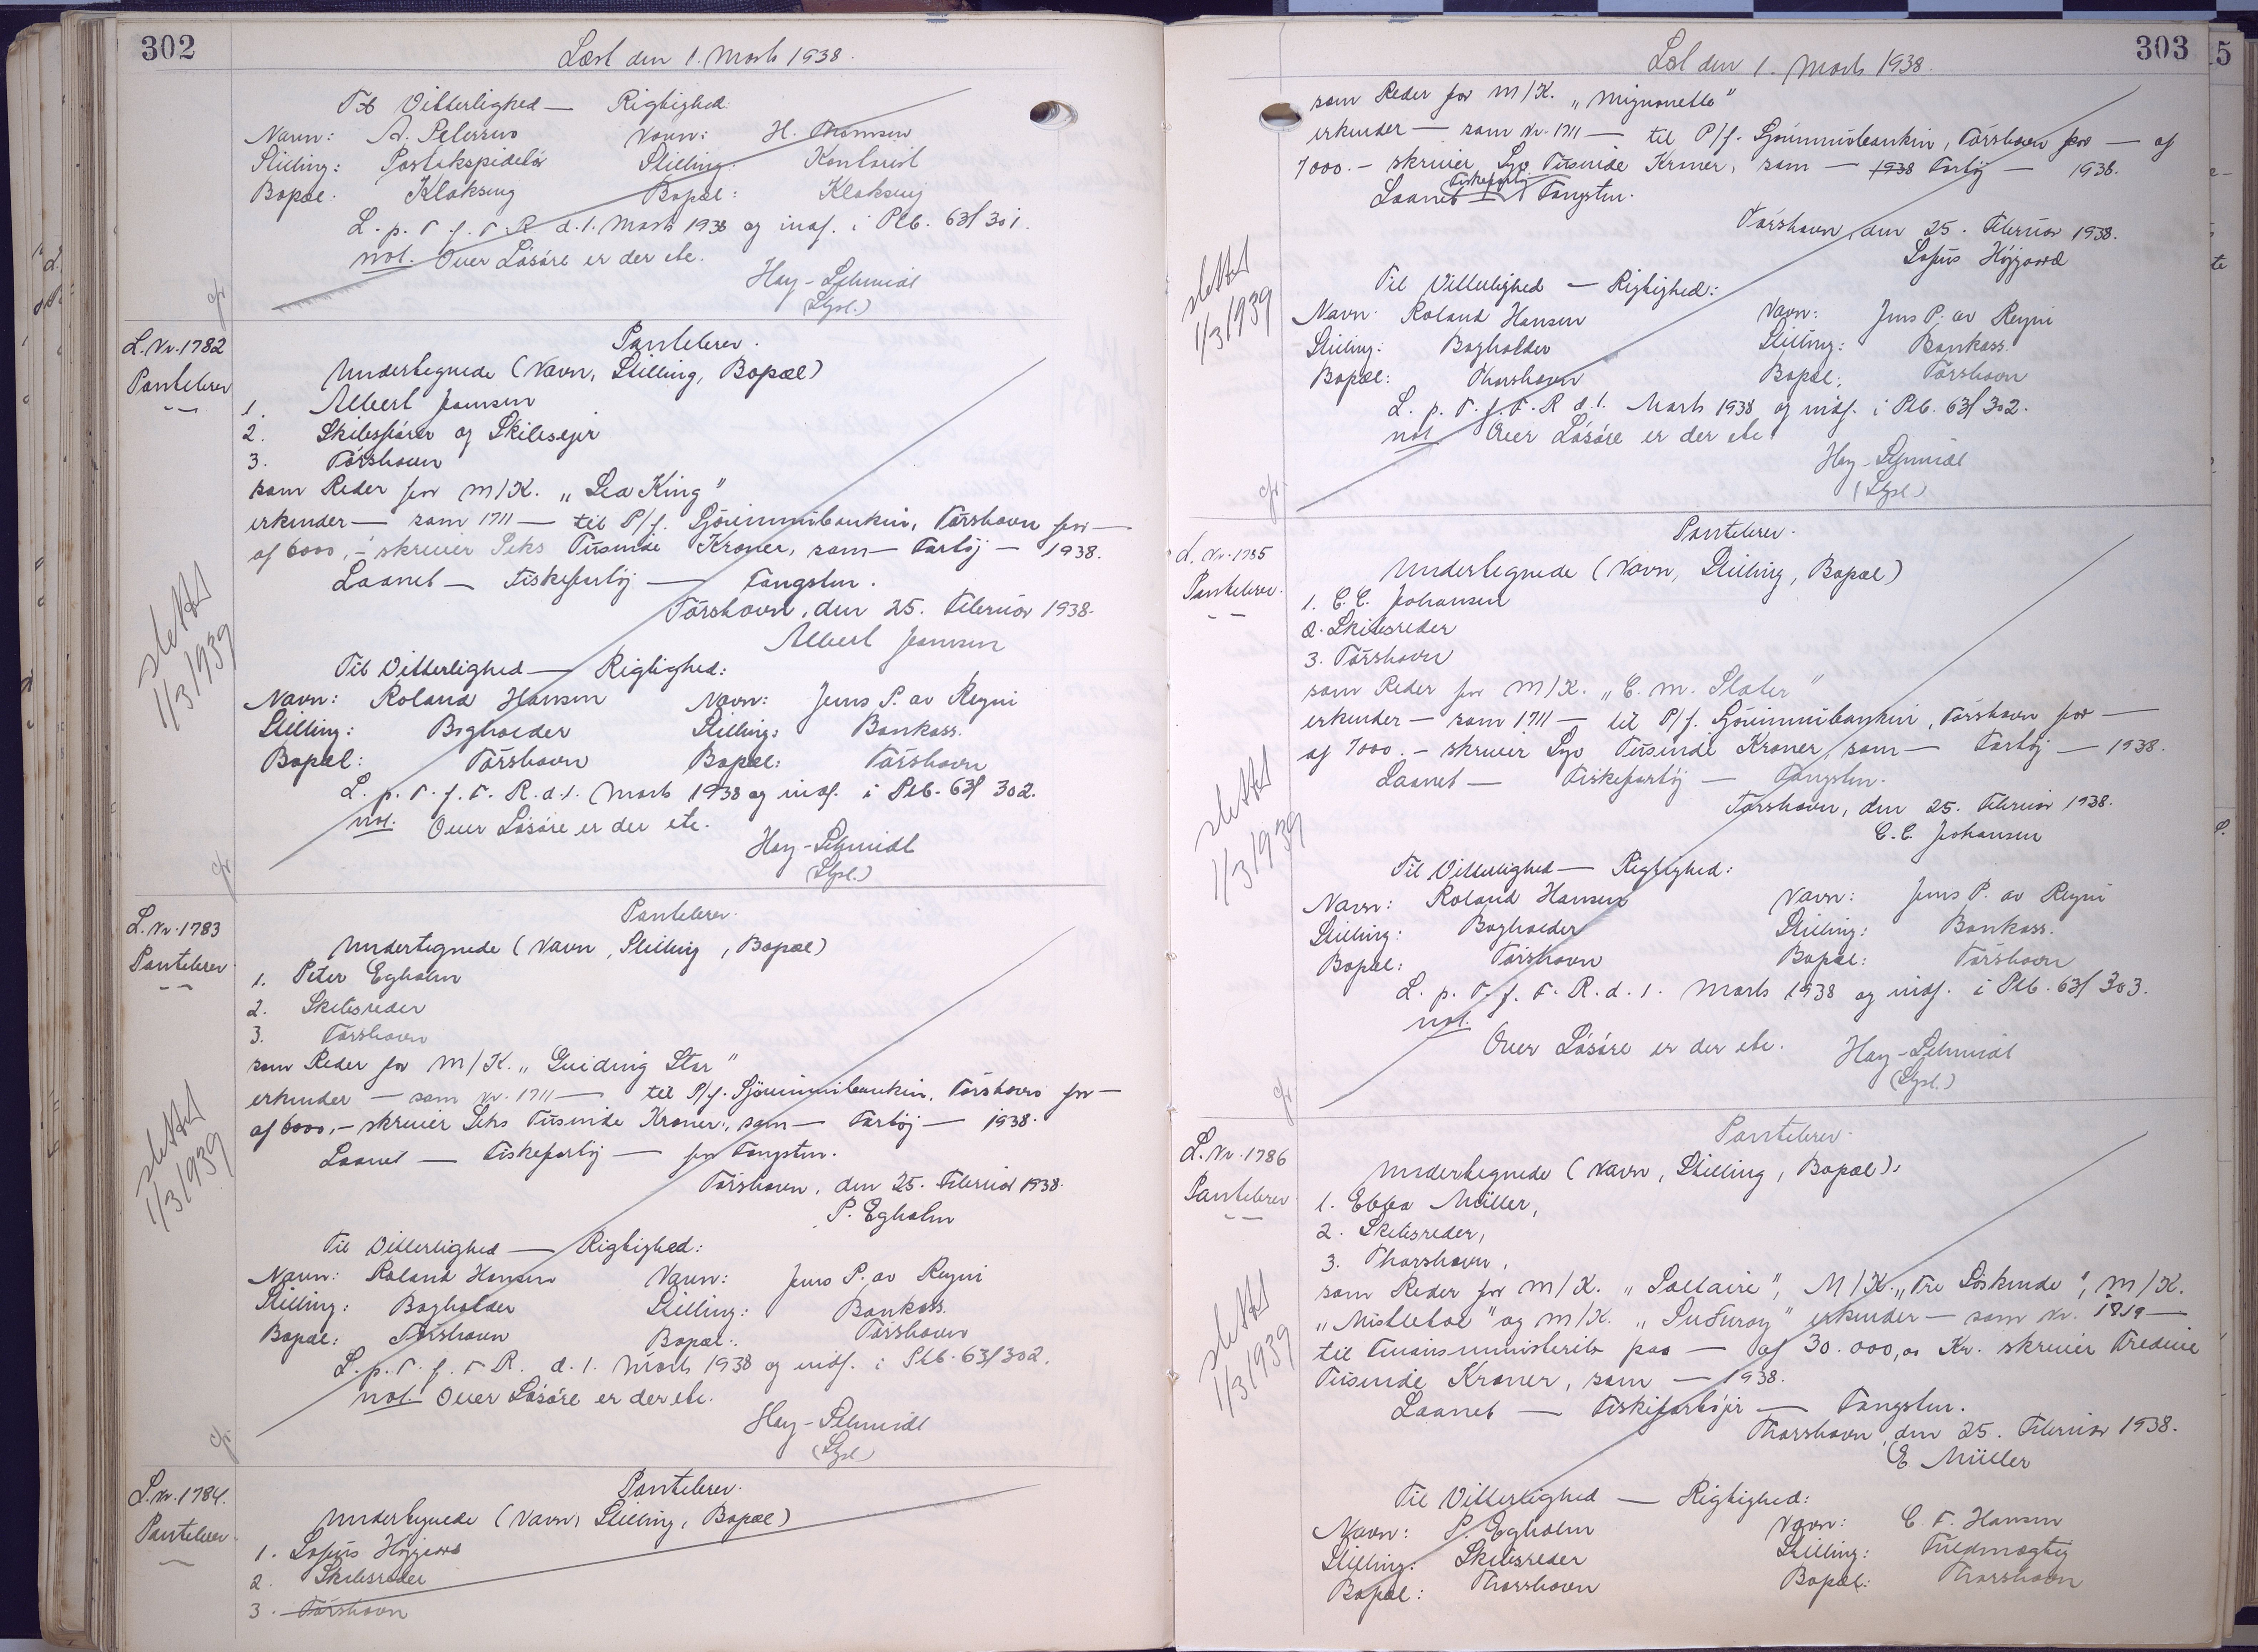 302
Læst den 1. Marts 1938.
Til Vitterlighed — Rigtighed:
Navn: A. Petersen Navn: H. Thomsen
Stilling: Postekspeditör Stilling: Kontorist
Bopæl: Klaksvig Bopæl: Klaksvig
L. p. T. f. F. R. d. 1. Marts 1938 og indf. i Ptb. 63/301.
not. Over Lösöre er der etc.
Hay-Schmidt
(Styr.)
L. Nr. 1782
Pantebrev
Pantebrev.
Undertegnede (Navn, Stilling, Bopæl)
1. Albert Joensen
2. Skibsförer og Skibsejer
3. Tórshavn
som Reder for M/K. „Sea King"
erkender — som 1711 — til P/f. Sjóvinnubankin, Tórshavn for —
af 6000,- skriver Seks Tusinde Kroner, som — Fartöj — 1938.
Laanet — Fiskefartöj — Fangsten.
Tórshavn, den 25. Februar 1938.
Albert Joensen
slettet
1/3 1939
Til Vitterlighed — Rigtighed:
Navn: Roland Hansen Navn: Jens P. av Reyni
Stilling: Bogholder Stilling: Bankass.
Bopæl: Tórshavn Bopæl: Tórshavn
L. p. T. f. F. R. d. 1. Marts 1938 og indf. i Ptb. 63/302.
not. Over Lösöre er der etc.
Hay-Schmidt
(Styr.)
L. Nr. 1783
Pantebrev.
Pantebrev.
Undertegnede (Navn, Stilling, Bopæl)
1. Peter Egholm
2. Skibsreder
3. Tórshavn
som Reder for M/K. „Guiding Star"
erkender — som Nr. 1711 — til P/f. Sjóvinnubankin, Tórshavn for —
af 6000,- skriver Seks Tusinde Kroner, som — Fartöj — 1938.
Laanet — Fiskefartöj — for Fangsten.
Tórshavn, den 25. Februar 1938.
P. Egholm
slettet
1/3 1939
Til Vitterlighed — Rigtighed:
Navn: Roland Hansen Navn: Jens P. av Reyni
Stilling: Bogholder Stilling: Bankass.
Bopæl: Tórshavn Bopæl: Tórshavn
L. p. T. f. F. R. d. 1. Marts 1938 og indf. i Ptb. 63/302.
not. Over Lösöre er der etc.
Hay-Schmidt
(Styr.)
L. Nr. 1784.
Pantebrev.
Pantebrev.
Undertegnede (Navn, Stilling, Bopæl)
1. Sofus Højgaard
2. Skibsreder
3. Tórshavn
303
Læst den 1. Marts 1938.
som Reder for M/K. „Mignonette"
erkender — som Nr. 1711 — til P/f. Sjóvinnubankin, Tórshavn for — af
7000.- skriver Syv Tusinde Kroner, som — 1938 Fartöj — 1938.
Laanet — Fiskefartöj — Fangsten.
Tórshavn, den 25. Februar 1938.
Sofus Højgaard
slettet
1/3 1939
Til Vitterlighed — Rigtighed:
Navn: Roland Hansen Navn: Jens P. av Reyni
Stilling: Bogholder Stilling: Bankass.
Bopæl: Thorshavn Bopæl: Tórshavn
L. p. T. f. F. R. d. 1. Marts 1938 og indf. i Ptb. 63/302.
not. Over Lösöre er der etc.
Hay-Schmidt
(Styr.)
L. Nr. 1785
Pantebrev.
Pantebrev.
Undertegnede (Navn, Stilling, Bopæl)
1. C. C. Johansen
2. Skibsreder
3. Tórshavn
som Reder for M/K. „E. M. Slater"
erkender — som 1711 — til P/f. Sjóvinnubankin, Tórshavn for —
af 7000.- skriver Syv Tusinde Kroner, som — Fartöj — 1938.
Laanet — Fiskefartöj — Fangsten.
Tórshavn, den 25. Februar 1938.
C. C. Johansen
slettet
1/3 1939
Til Vitterlighed — Rigtighed:
Navn: Roland Hansen Navn: Jens P. av Reyni
Stilling: Bogholder Stilling: Bankass.
Bopæl: Tórshavn Bopæl: Tórshavn
L. p. T. f. F. R. d. 1. Marts 1938 og indf. i Ptb. 63/303.
not.
Over Lösöre er der etc.
Hay-Schmidt
(Styr.)
L. Nr. 1786
Pantebrev.
Pantebrev.
Undertegnede (Navn, Stilling, Bopæl):
1. Ebba Müller,
2. Skibsreder,
3. Thorshavn,
som Reder for M/K. „Soltaire", M/K. „Tre Söskende", M/K.
„Mistletoe" og M/K. „Suduroy" erkender — som Nr. 1819 —
til Finansministeriet paa — af 30.000,00 Kr. skriver Tredive
Tusinde Kroner, som — 1938.
Laanet — Fiskefartöjer — Fangsten.
Thorshavn, den 25. Februar 1938.
E Müller
slettet
1/3 1939
Til Vitterlighed — Rigtighed:
Navn: P. Egholm Navn: C. F. Hansen
Stilling: Skibsreder Stilling: Fuldmægtig
Bopæl: Thorshavn Bopæl: Thorshavn